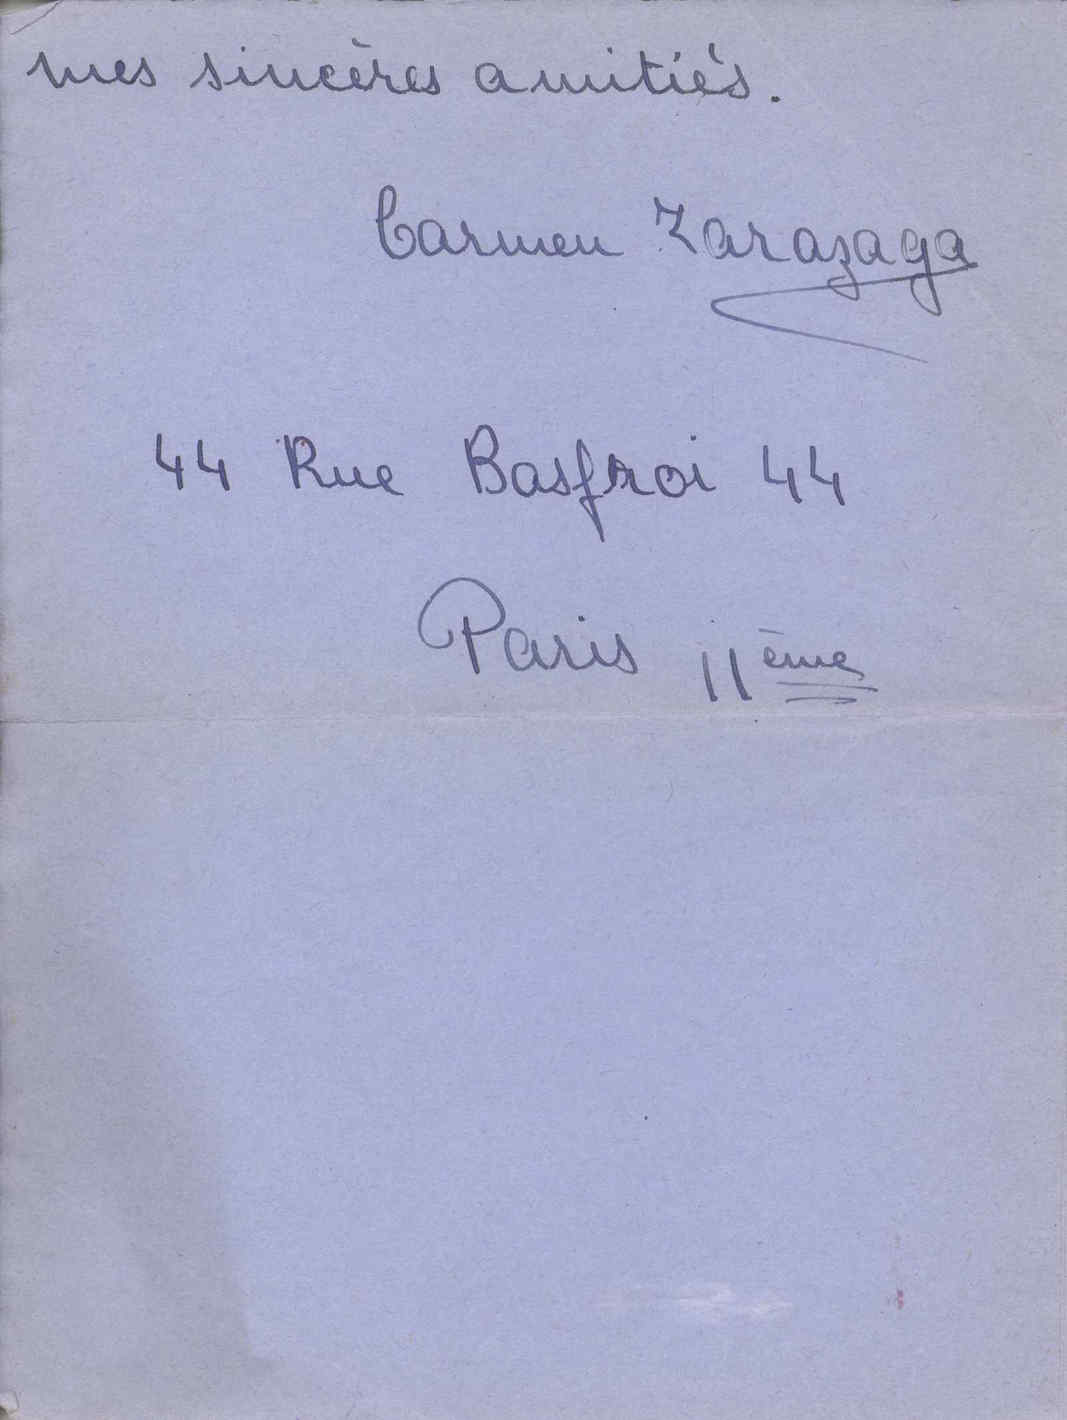 mes sincères amitiés.
Carmen Zarazaga
44 Rue Basfroi 44
Paris 11ème